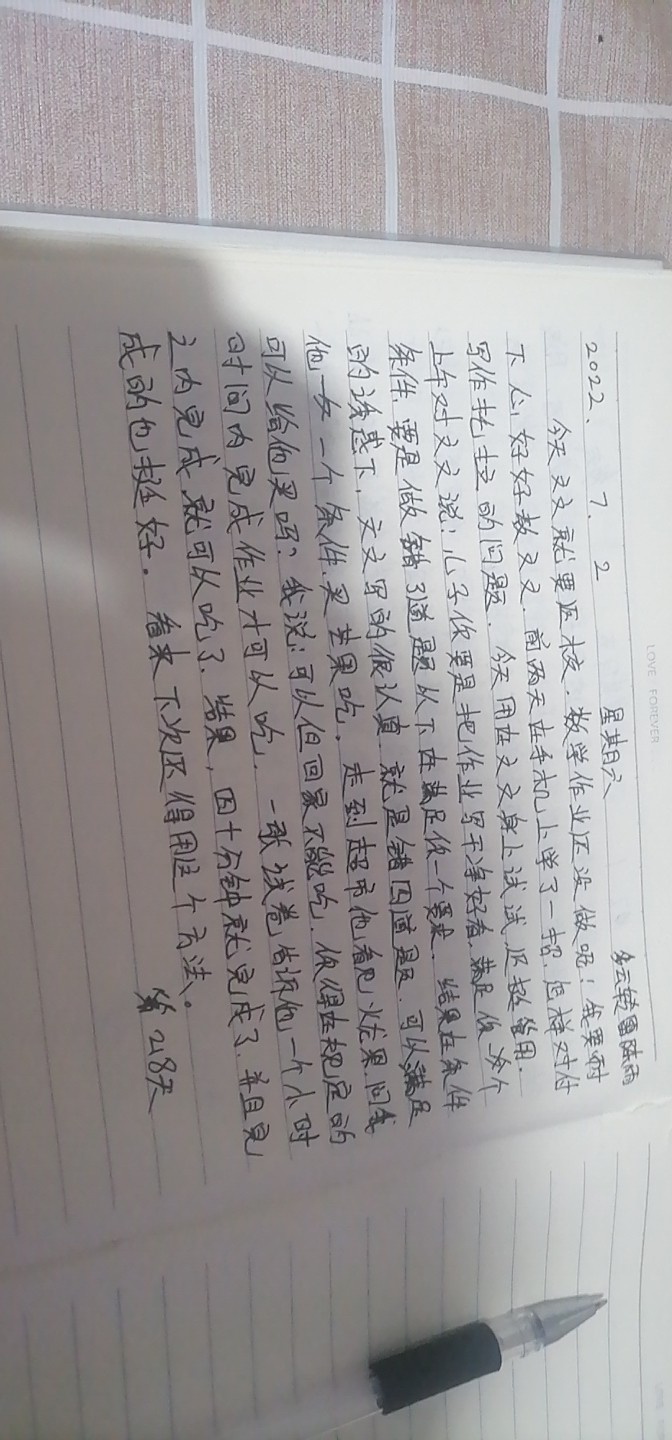 LOVE FOREVER
2022、7、2 星期六 多云转雷阵雨
今天文文就要返校.数学作业还没做呢!我要耐
下心,好好教文文.前两天在手机上学了一招,怎样对付
写作拖拉的问题.今天用在文文身上试试,还挺管用.
上午对文文说:儿子你要是把作业写干净好看,满足你一个
条件,要是做错3道题以下在满足你一个要求.结果在条件
的诱惑下,文文写的很认真,就是错四道题.可以满足
他一个条件,买芒果吃.走到超市他看见火龙果,问我
可以给他买吗?我说:可以但回家不能吃.你得在规定的
时间内完成作业才可以吃.一张试卷告诉他一个小时
之内完成就可以吃了.结果,四十分钟就完成了.并且完
成的也挺好。看来下次还得用这个方法。
第218天